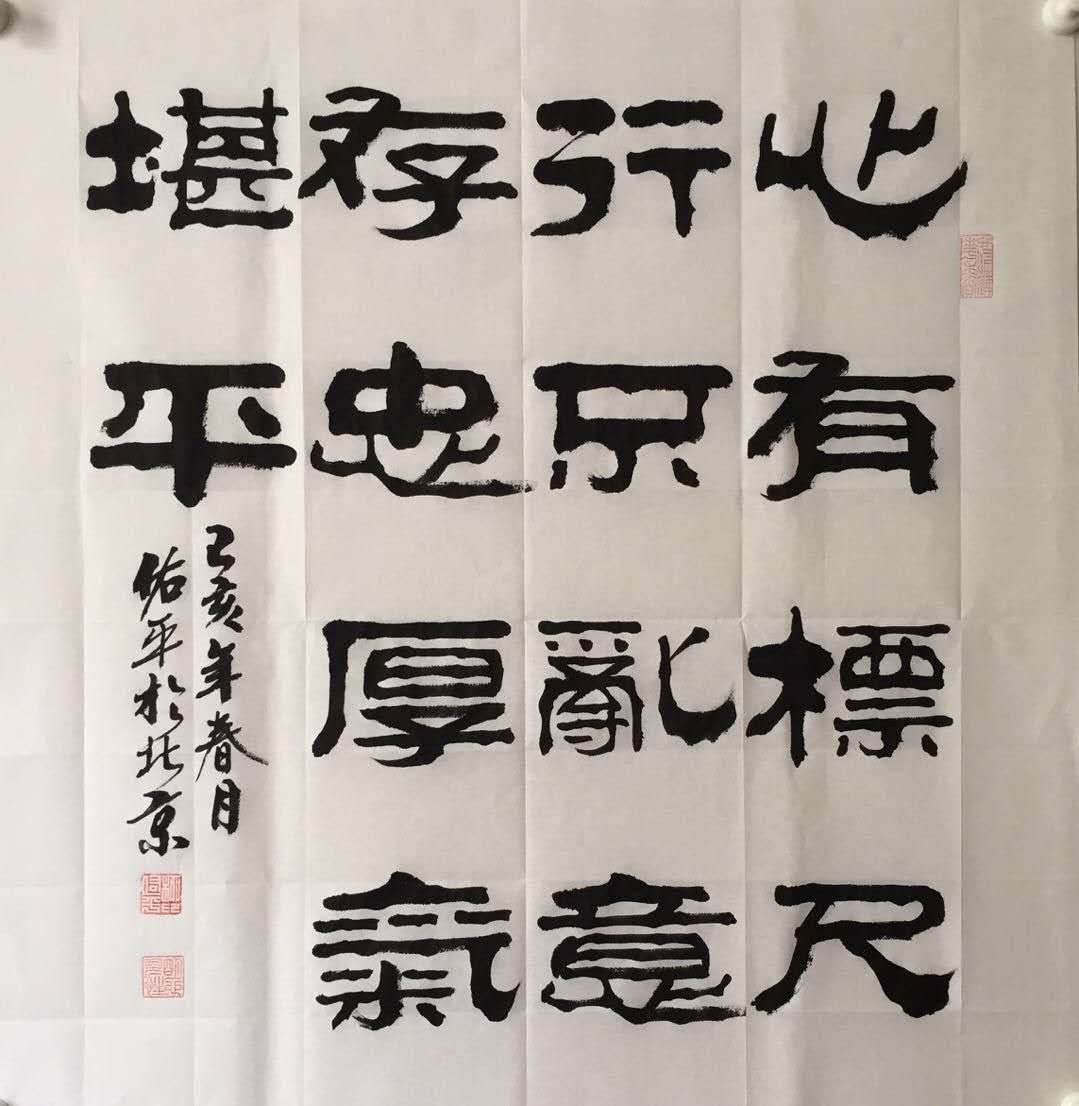 心有標尺
行不亂意
存忠厚氣
堪平
己亥年春月
佑平於北京